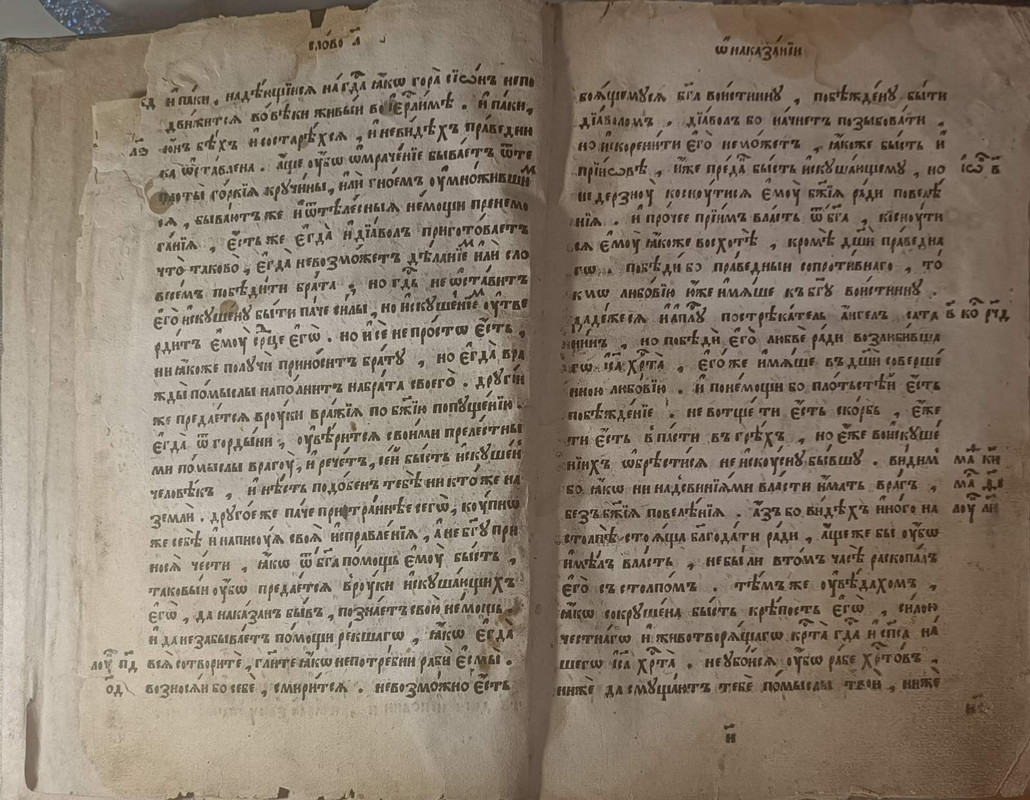 сло́во а҃
и҆ па́ки. надѣ́ющїися на́ гд҇а ꙗ҆́кѡ гора̀ сїѡ́нъ непо
дви́жится во вѣ́ки живы́и во і҆ер҇ли́мѣ. и҆ па́ки,
ю҆́нъ бѣ́хъ и҆ состарѣ́хся, и҆ неви́дѣхъ пра́ведни
ка ѡ҆ста́влена. а҆́ще ᲂу҆́бѡ ѡ҆мраче́нїе быва́етъ ѿ те
плоты̀ го́ркїꙗ кручи́ны, и҆лѝ гно́емъ ᲂу҆мно́живши
сѧ, быва́ютъ же и҆ ѿ тѣле́сныꙗ не́мощи пренемо
га́нїꙗ, є҆́сть же є҆гда̀ и҆ дїа́волъ приготовлѧ́етъ
что̀ таково̀, є҆гда̀ невозмо́жетъ дѣ́ланїемъ и҆лѝ сло
весе́мъ побѣди́ти бра́та, но гд҇ь не ѡ҆ста́витъ
є҆го̀ и҆скуше́ну бы́ти па́че си́лы, но и҆скуше́нїемъ ᲂу҆тве
рди́тъ є҆мᲂу̀ ср҇це є҆гѡ̀. но и҆ се́ не про́стѡ є҆́сть,
ни ꙗ҆́коже получѝ прино́ситъ бра́ту, но є҆гда̀ вра
жды̀ по́мыслы напо́лнитъ на бра́та своего̀. дру́гїи
же предае́тся в рᲂу́ки вра́жїꙗ по бж҇їю попуще́нїю.
є҆гда̀ ѿ горды́ни, ᲂу҆вѣ́рится свои́ми преле́стны
ми по́мыслы врагᲂу̀, и҆ рече́тъ, се́й бы́сть и҆скуше́н
человѣ́къ, и҆ нѣ́сть подо́бенъ тебѣ̀ никто́же на
землѝ. друго́е же па́че пристра́ннѣе сегѡ̀, ко́упнѡ
же себѣ̀ и҆ написᲂу́ꙗ своѧ̀ и҆справле́нїꙗ, а҆ не бг҃у при
носѧ̀ че́сти, ꙗ҆́кѡ ѿ бг҃а по́мощь є҆мᲂу̀ бы́сть,
таковы́и ᲂу҆́бѡ предае́тся в рᲂу́ки и҆скуша́ющихъ
є҆гѡ̀, да нака́занъ бы́въ, позна́етъ свою̀ не́мощь,
и҆ да незабыва́етъ по́мощи ре́кшагѡ, ꙗ҆́кѡ є҆гда̀
всѧ̀ сотвори́те, гл҃и́те ꙗ҆́кѡ непотре́бни рабѝ є҆смы̀.
возносѧ́и бо себѐ, смири́тся. невозмо́жно є҆́сть
лᲂу҇ п҃д
о҃д
ѡ҆ наказа́нїи
боѧ́щемуся бг҃а вои́стинну, побѣжде́ну бы́ти
дїа́воломъ. дїа́волъ бо начне́тъ позыбова́ти,
но и҆скорени́ти є҆го̀ не мо́жетъ, ꙗ҆́коже бы́сть и҆
при і҆́ѡвѣ, и҆́же преда́нъ бы́сть и҆скуша́ющему, но
не де́рзнᲂу коснᲂу́тися є҆мᲂу̀ бж҇їꙗ ра́ди повелѣ́
нїꙗ. и҆ про́чее прїи́мъ вла́сть ѿ бг҃а, коснᲂу́ти
ся є҆мᲂу̀ ꙗ҆́коже восхотѣ̀, кромѣ̀ дш҃и пра́ведна
гѡ. побѣди́ бо пра́ведныи сопроти́внаго, то́
кмѡ любо́вїю ю҆́же и҆мѧ́ше къ бг҃у вои́стинну.
даде́жеся и҆ а҆п҇лу пострѣка́тель а҆́нгелъ сата
нии́нъ, но побѣдѝ є҆го̀ любвѐ ра́ди возлюби́вша
гѡ і҆с҃а хр҇та̀, є҆го́же и҆мѧ́ше в дш҃и соверше́
нною любо́вїю. и҆ по не́мощи бо пло́тьстѣи є҆́сть
побѣжде́нїе. не вотще́ ти є҆́сть ско́рбь, є҆́же
ти є҆́сть впа́сти въ грѣ́хъ, но є҆́же во и҆скуше́
нїихъ ѡ҆брѣ́стися не и҆скᲂу́сну бы́вшу. ви́дим
бо ꙗ҆́кѡ ни над свинїѧ́ми вла́сти и҆́мать вра́гъ,
без бж҇їꙗ повелѣ́нїꙗ. а҆́зъ бо ви́дѣхъ и҆́ного на
столпѣ̀ стоѧ́ща благода́ти ра́ди, а҆́ще же бы ᲂу҆́бѡ
и҆мѣ́лъ вла́сть, не бы́ ли в то́мъ ча́сѣ раскопа́лъ
є҆го̀ с столпо́мъ. тѣ́мъ же ᲂу҆вѣ́дахомъ,
ꙗ҆́кѡ сокруше́на бы́сть крѣ́пость є҆гѡ̀, си́лою
честна́гѡ и҆ животворѧ́щагѡ кр҇та̀ гд҇а и҆ сп҃са на́
шегѡ і҆с҃а хр҇та̀. не убо́ися ᲂу҆́бѡ ра́бе хр҇то́въ,
нижѐ да смуща́ютъ тебѐ по́мыслы твоѝ, нижѐ
і҆ѡ҇в в҃
в҃ ко҇р р҃ч҃д
лᲂу҇
и҃